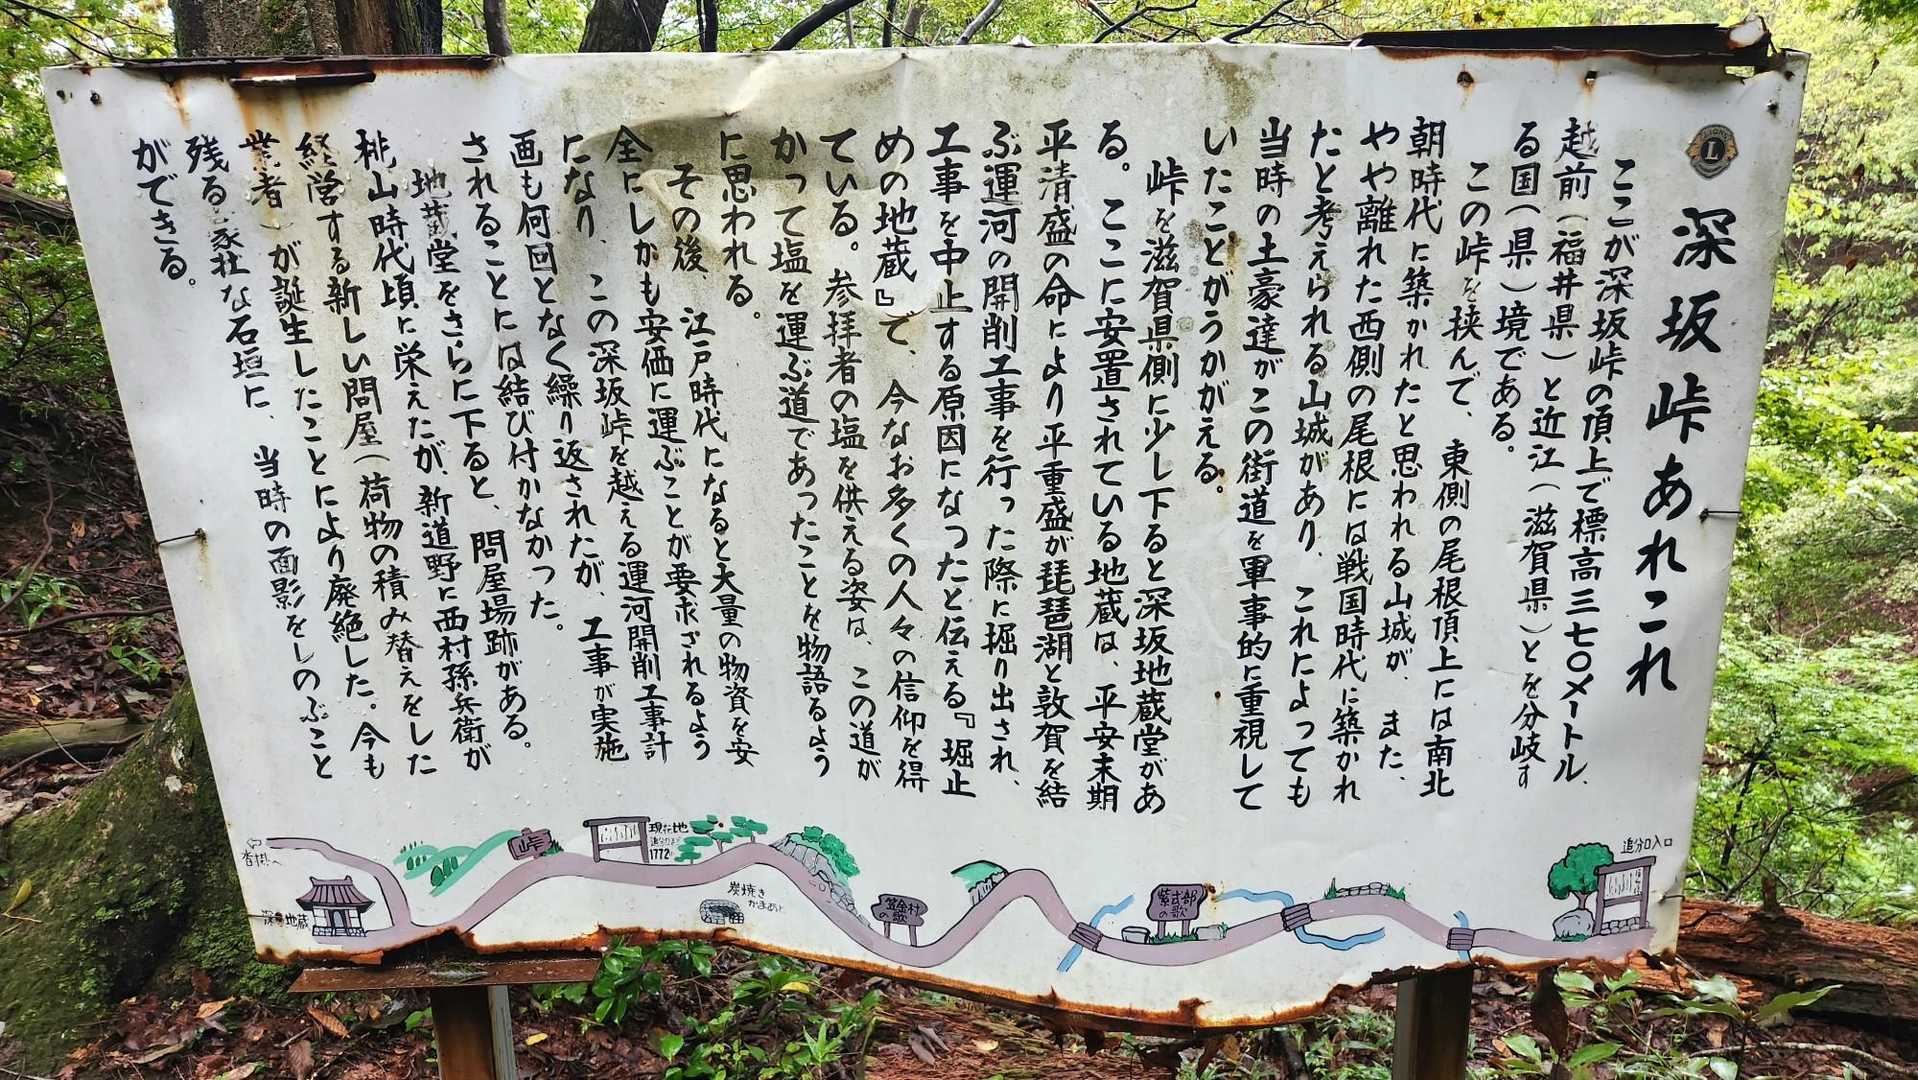 深坂峠あれこれ
ここが深坂峠の頂上で標高三七〇メートル、
越前（福井県）と近江（滋賀県）とを分岐す
る国（県）境である。
この峠を挟んで、東側の尾根頂上には南北
朝時代に築かれたと思われる山城が、また、
やや離れた西側の尾根には戦国時代に築かれ
たと考えられる山城があり、これによっても
当時の土豪達がこの街道を軍事的に重視して
いたことがうかがえる。
峠を滋賀県側に少し下ると深坂地蔵堂があ
る。ここに安置されている地蔵は、平安末期
平清盛の命により平重盛が琵琶湖と敦賀を結
ぶ運河の開削工事を行った際に掘り出され、
工事を中止する原因になつたと伝える『堀止
めの地蔵』で、今なお多くの人々の信仰を得
ている。参拝者の塩を供える姿は、この道が
かって塩を運ぶ道であったことを物語るよう
に思われる。
その後、江戸時代になると大量の物資を安
全にしかも安価に運ぶことが要求されるよう
になり、この深坂峠を越える運河開削工事計
画も何回となく繰り返されたが、工事が実施
されることには結び付かなかった。
地蔵堂をさらに下ると、問屋場跡がある。
桃山時代頃に栄えたが、新道野に西村孫兵衛が
経営する新しい問屋（荷物の積み替えをした
業者）が誕生したことにより廃絶した。今も
残る豪壮な石垣に、当時の面影をしのぶこと
ができる。
追分口入口
紫式部
の歌
笠金村
の歌
炭焼き
かまあと
現在地
1772
峠
深坂地蔵
沓掛へ
L